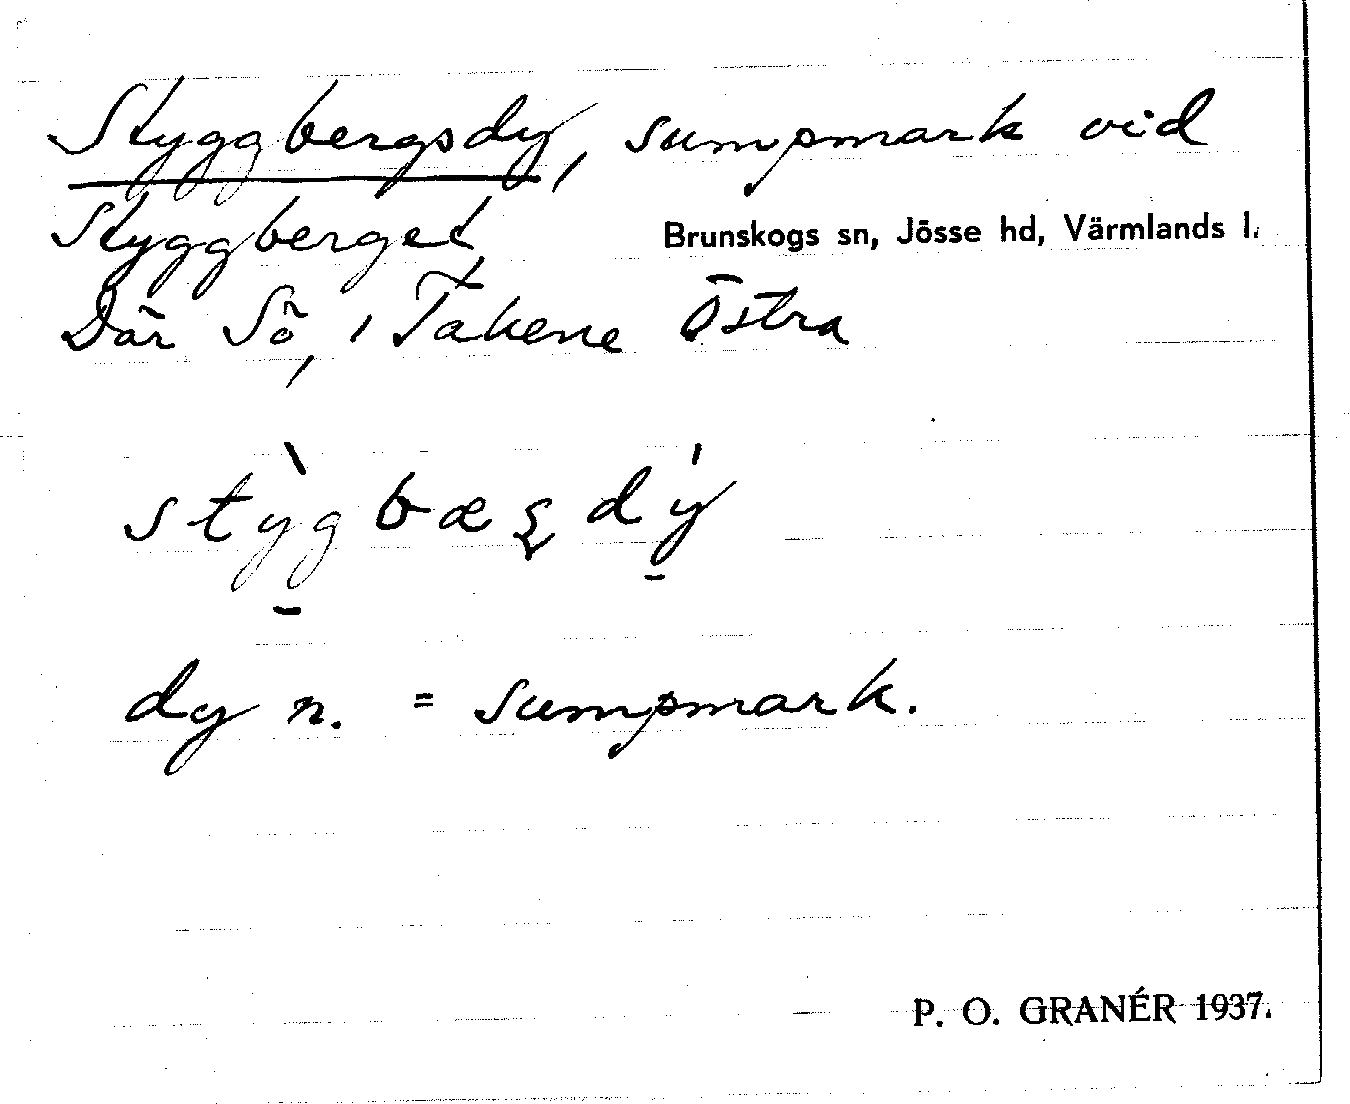 Styggbergsdy, sumpmark vid
Styggberget Brunskogs sn, Jösse hd, Värmlands l.
Där Sö, i Takene Östra
stỳgbæşdý
dy n. = sumpmark.
P. O. GRANÉR 1937.